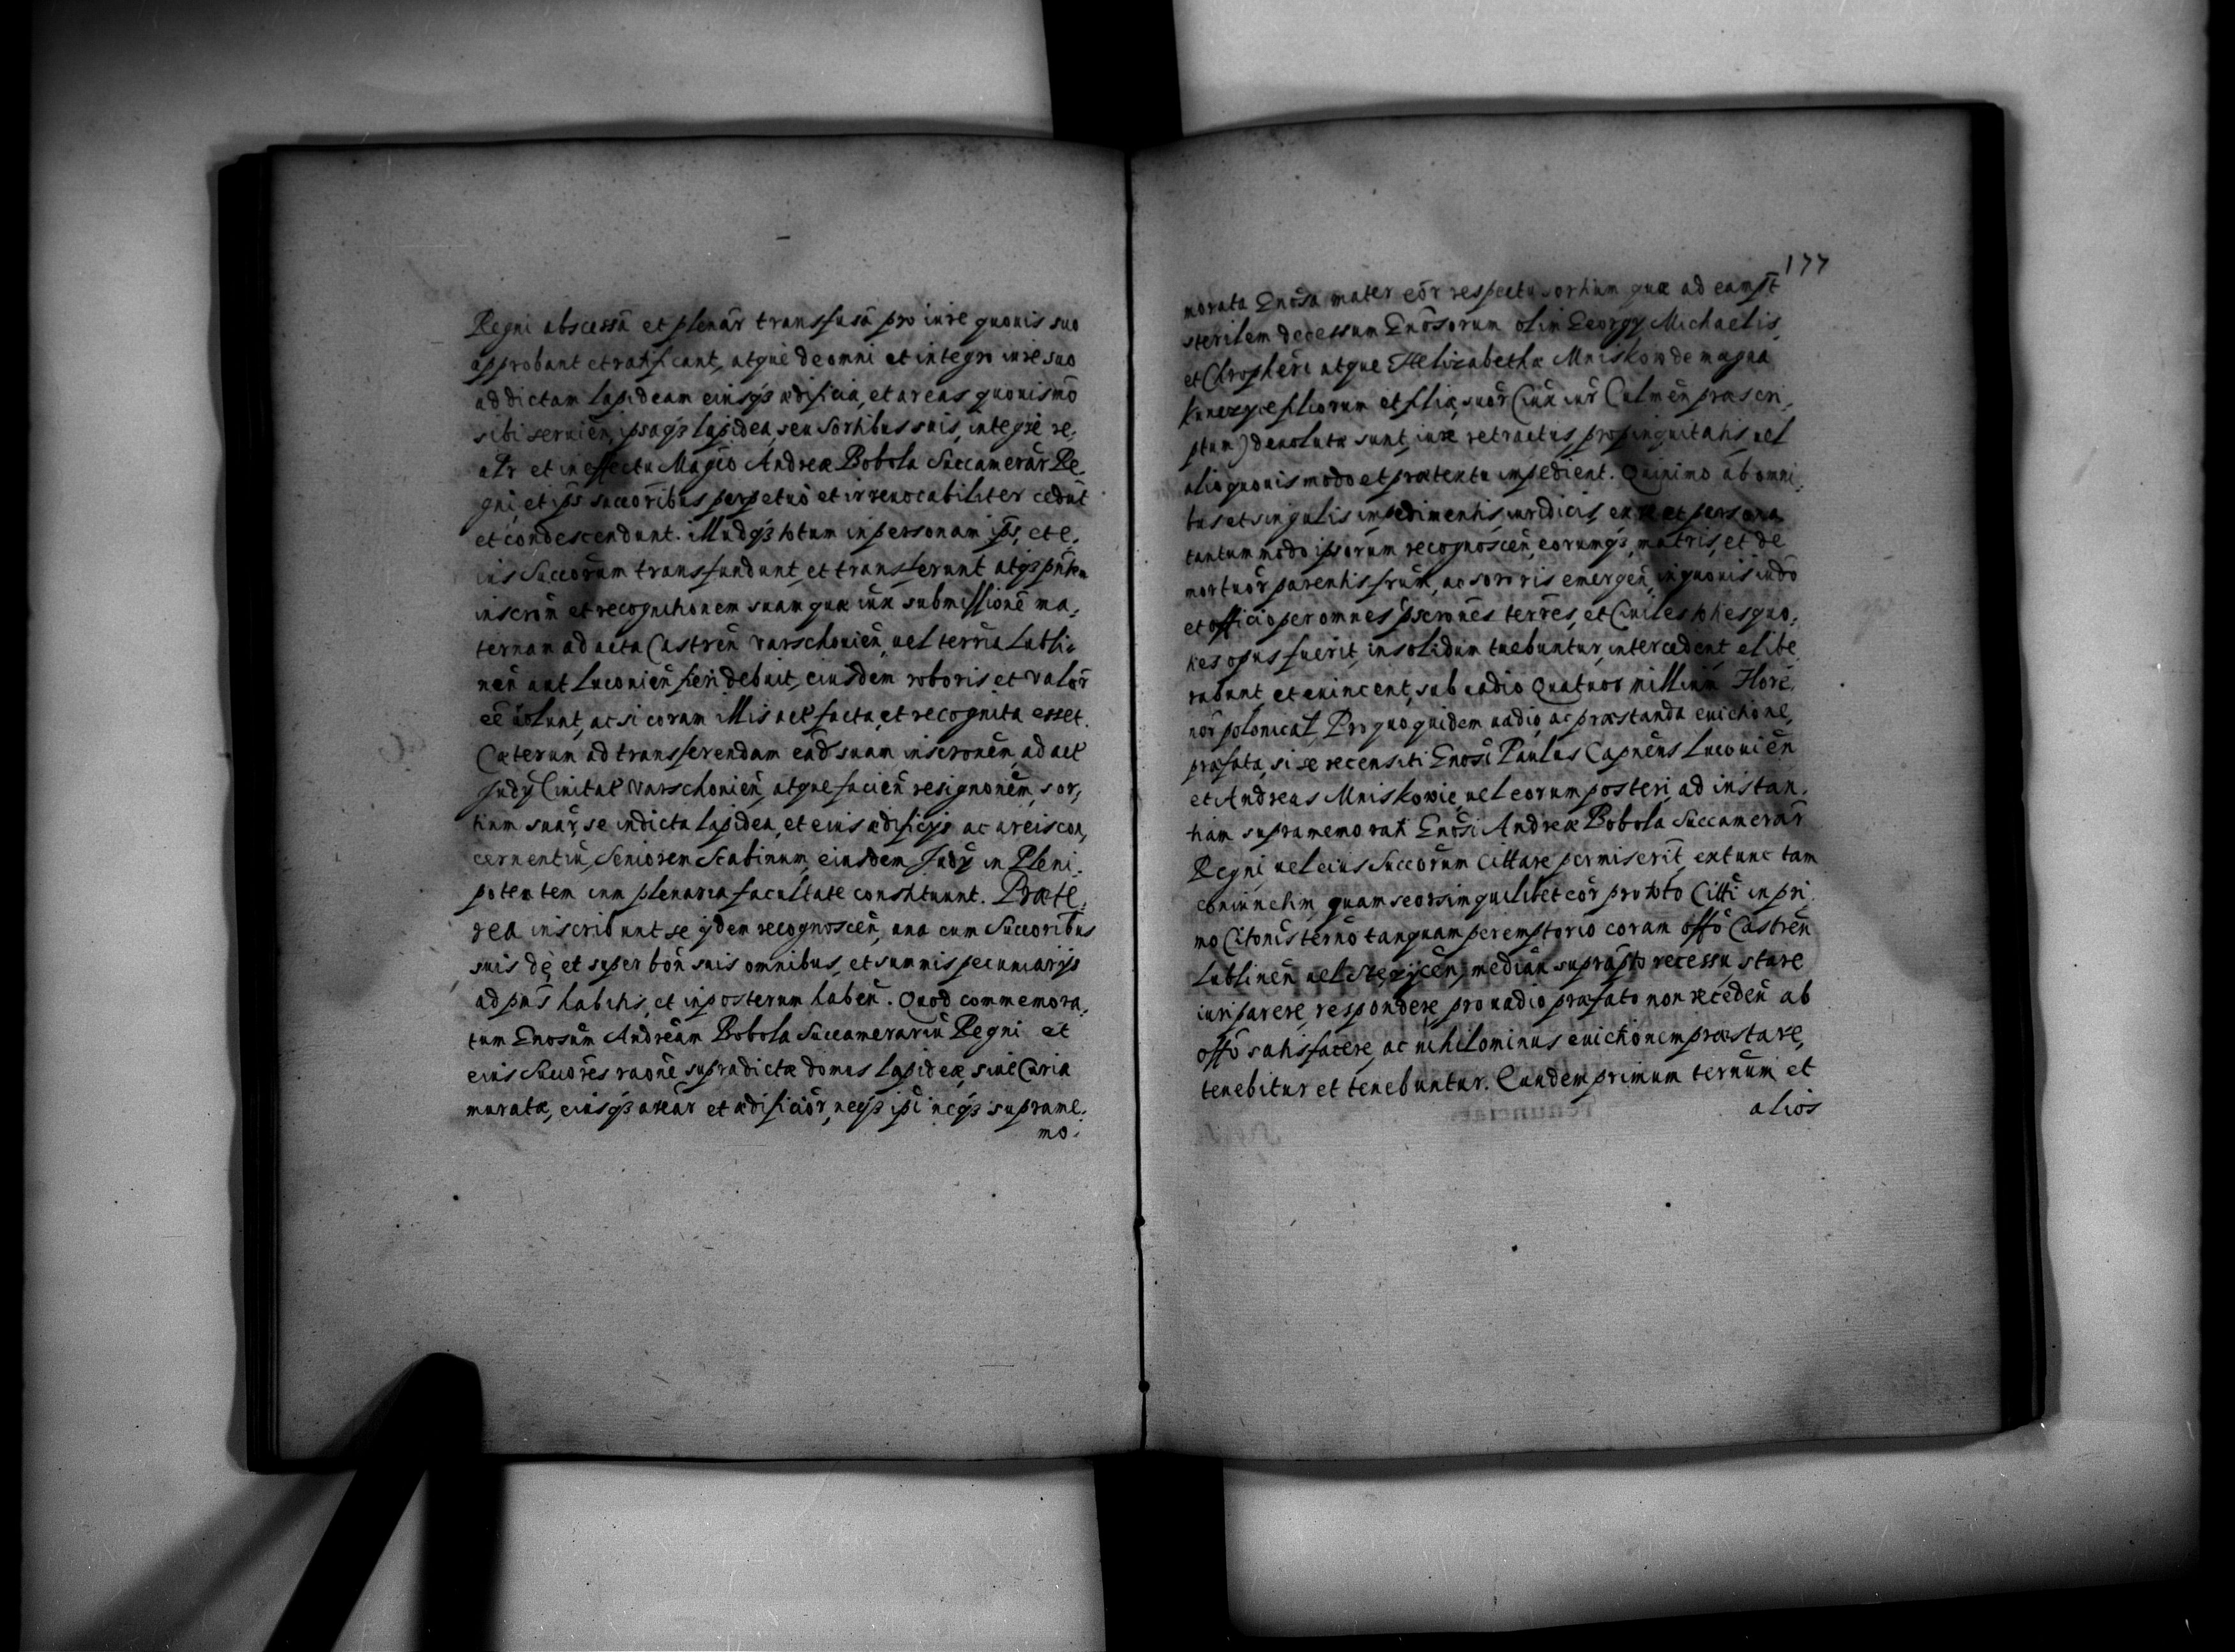 Regni abscessã et plenãr transfusã pro iure quouis suo
approbant et ratificant, atque de omni et integro iure suo
ad dictam lapideam eiusq3 ædificia, et areas quouismõ
sibi seruieñ, ipsaq3 lapidea, seu Sortibus suis, integrè re,
et in effectu Magco Andreæ Bobola Succamerãr Re,
gni, et ips succõribus perpetuò et irreuocabiliter cedũt
et condescendunt. Illudq3 totum in personam ips, et e,
ius Succorũm transfundunt, et transferunt atq3 pñtem
inscrõn et recognitionem suam quæ iũx submissionẽ ma,
ternam ad acta Castreñ Varschouieñ, uel terrĩa Lubli,
neñ aut Luconieñ fieri debuit, eiusdem roboris et valõr
eẽ uolunt, ac si coram illis act facta, et recognita esset.
Cæterum ad transferendam eãd suam inscronẽm, ad act
Judÿ Ciuitat Varschouieñ, atque facieñ resignonẽm, sor,
tium suãr, se in dicta lapidea, et eius ædificijs ac areis con,
cernentiũ, Seniorem Scabinum, eiusdem Judÿ in Pleni,
potentem cum plenaria facultate constituunt. Præte,
rea inscribunt se ijdem recognosceñ, una cum Succoribũs
suis dè et super boñ suis omnibus, et summis pecuniarijs
ad pñs habitis, et in posterum habeñ. Quod commemora,
tum Gnosũm Andreãm Bobola Succamerariũ Regni et
eius Succorẽs raõne supradictæ domus lapideæ, siue Curia
muratæ, eiusq3 areãr et ædificiõr, neq3 ipĩ neq3 suprame,
mo,
177
morata Gnosã mater eõr respectu sortium quæ ad eam pt
sterilem decessum Gnõsorum olim Georgÿ Michaelis,
et Chropheri atque Helizabethæ Mniskow de magna
Kunczyce filiorum et filiæ, suõr (iux iur Culmeñ præscri,
ptum) deuolutæ sunt, iure retractus propinquitatis, uel
alio quouis modo et prætextu impedient. Quinimo ab omni,
bus et singulis impedimentis, iuridicis, ex re et persona
tantummodo ipsorum recognosceñ, eorumq3 matris, et de
mortuõr parentis frũm, ac sororis emergeñ, in quouis iudõ
et officio per omnes pscronẽs terrẽs, et Ciuiles toties quo,
ties opus fuerit, in solidum tuebuntur, intercedent elibe
rabunt et euincent, sub uadio Quatuor milliũm Flore,
nõr polonical. Pro quo quidem uadio, ac præstanda euictione,
præfata, si se recensiti Gnosĩ Paulus Capneũs Luconieñ
et Andreas Mniskowie, uel eorum posteri, ad instan,
tiam supramemorati Gnõsi Andreæ Bobola Succamerãr
Regni, uel eius Succorũm Cittare permiserĩt, extunc tam
coniunctim, quam seorsim quilibet eõr pro toto Cittĩ in pri,
mo Citonĩs ternõ tanquam peremptorio coram offõ Castreñ
Lublineñ uel, mediañ suprapto recessu, stare
iuri parere, respondere, pro uadio præfato non recedeñ ab
offõ satisfacere, ac nihilominus euictionem præstare,
tenebitur et tenebuntur. Eundem primum ternũm et
alios